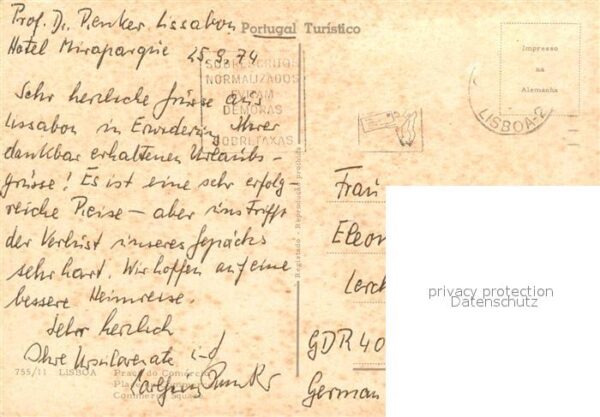 Prof. Dr. Penker Lissabon
Hotel Miraparque 25.9.74
Portugal Turístico
SOBRESCRITOS
NORMALIZADOS
EVITAM
DEMORAS
SOBRETAXAS
Impresso
na
Alemanha
LISBOA-2
Sehr herzliche Grüsse aus
Lissabon in Erwiderung Ihrer
dankbar erhaltenen Urlaubs-
grüsse! Es ist eine sehr erfolg-
reiche Reise – aber uns trifft
der Verlust unseres Gepäcks
sehr hart. Wir hoffen auf eine
bessere Heimreise.
Sehr herzlich
Ihre und
755/11 LISBOA Praça do Comércio
Commerce Square
Registado - Reprodução proibida
Frau
Eleon
Lerch
GDR 40
German
privacy protection
Datenschutz